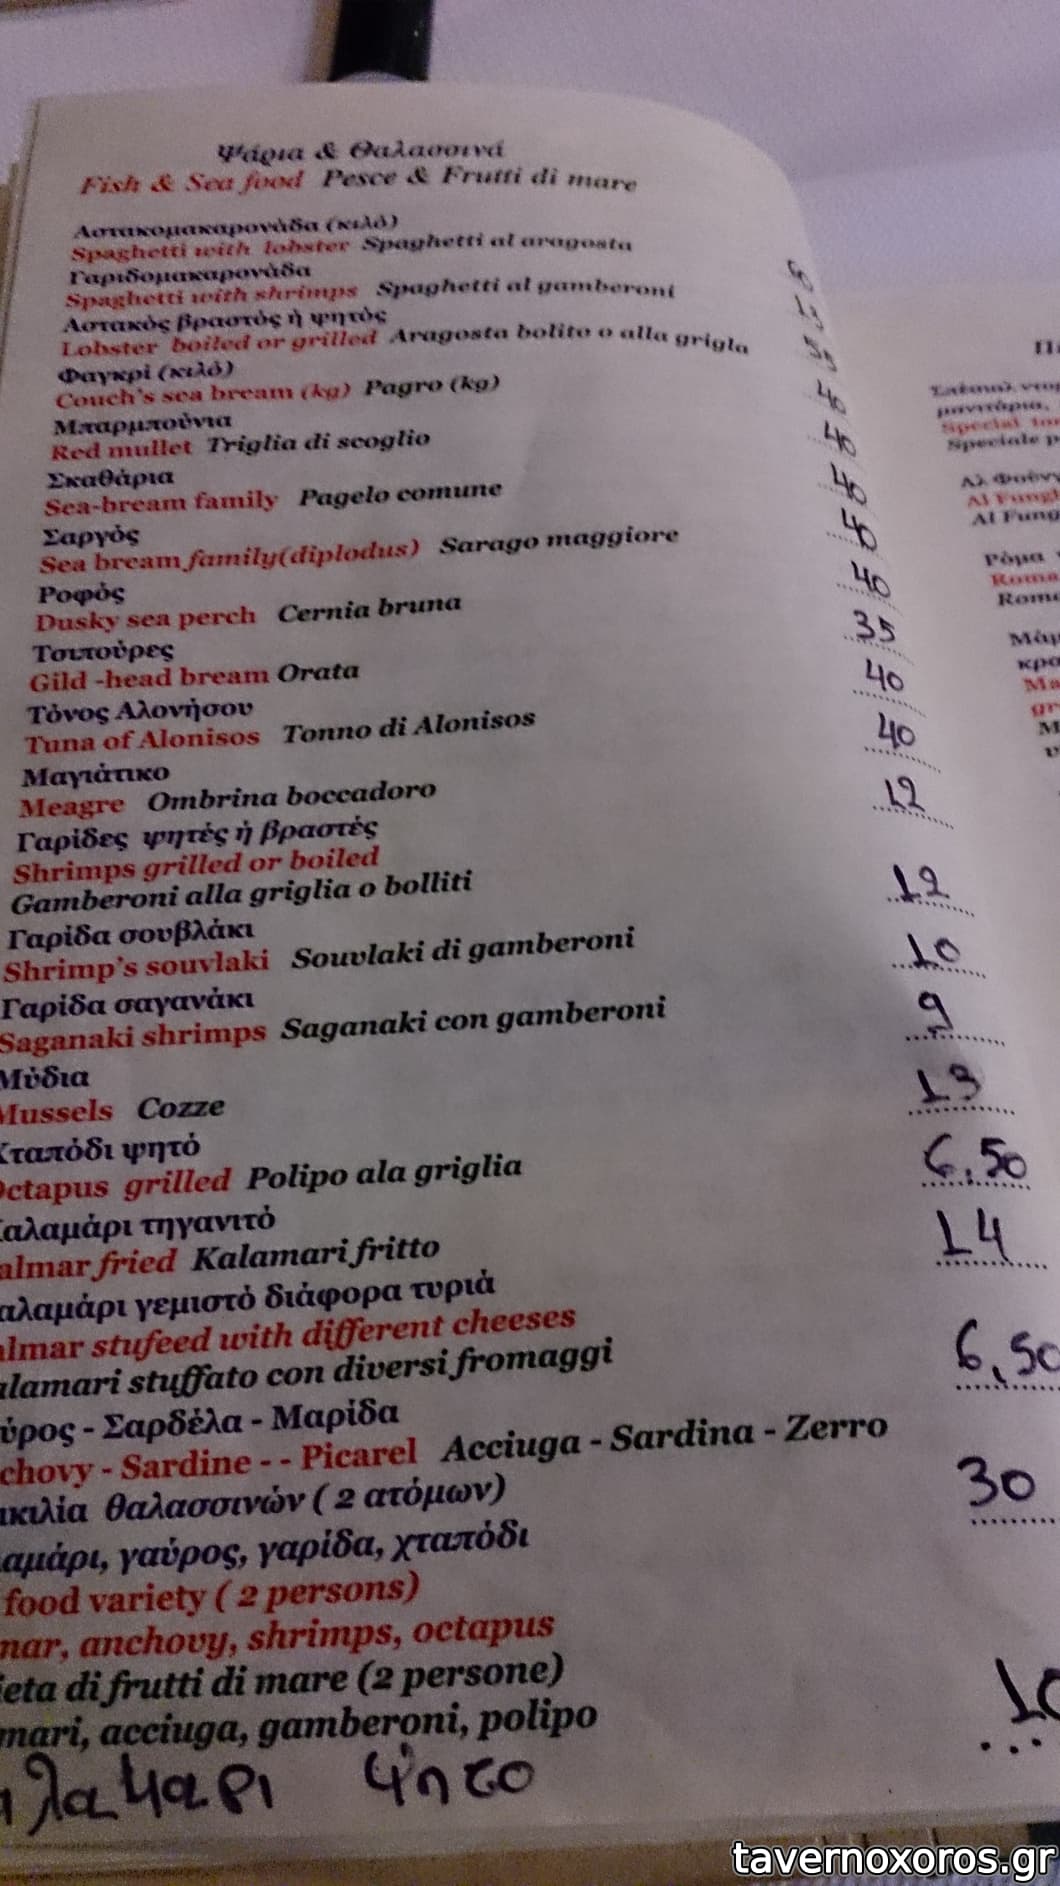 Ψάρια & Θαλασσινά
Fish & Sea food Pesce & Frutti di mare
Αστακομακαρονάδα (κιλό)
Spaghetti with lobster Spaghetti al aragosta
Γαριδομακαρονάδα 60
Spaghetti with shrimps Spaghetti al gamberoni 13
Αστακός βραστός ή ψητός
Lobster boiled or grilled Aragosta bolito o alla grigla 55
Φαγκρί (κιλό)
Couch's sea bream (kg) Pagro (kg) 40
Μπαρμπούνια
Red mullet Triglia di scoglio 40
Σκαθάρια
Sea-bream family Pagelo comune 40
Σαργός
Sea bream family(diplodus) Sarago maggiore 40
Ροφός
Dusky sea perch Cernia bruna 40
Τσιπούρες
Gild -head bream Orata 35
Τόνος Αλονήσου
Tuna of Alonisos Tonno di Alonisos 40
Μαγιάτικο
Meagre Ombrina boccadoro 40
Γαρίδες ψητές ή βραστές
Shrimps grilled or boiled 12
Gamberoni alla griglia o bolliti
Γαρίδα σουβλάκι
Shrimp's souvlaki Souvlaki di gamberoni 12
Γαρίδα σαγανάκι
Saganaki shrimps Saganaki con gamberoni 10
Μύδια
Mussels Cozze 9
Χταπόδι ψητό
Octapus grilled Polipo ala griglia 13
αλαμάρι τηγανιτό
almar fried Kalamari fritto 6,50
αλαμάρι γεμιστό διάφορα τυριά
almar stufeed with different cheeses 14
alamari stuffato con diversi fromaggi
ύρος - Σαρδέλα - Μαρίδα
chovy - Sardine - - Picarel Acciuga - Sardina - Zerro 6,50
ικιλία θαλασσινών ( 2 ατόμων)
αμάρι, γαύρος, γαρίδα, χταπόδι 30
food variety ( 2 persons)
mar, anchovy, shrimps, octapus
ieta di frutti di mare (2 persone)
mari, acciuga, gamberoni, polipo
λαμαρι ψητο 10
Σπέσιαλ
μανιτάρια,
Special
Speciale
Al Fung
Al Fung
Ρόμα
Roma
Roma
tavernoxoros.gr